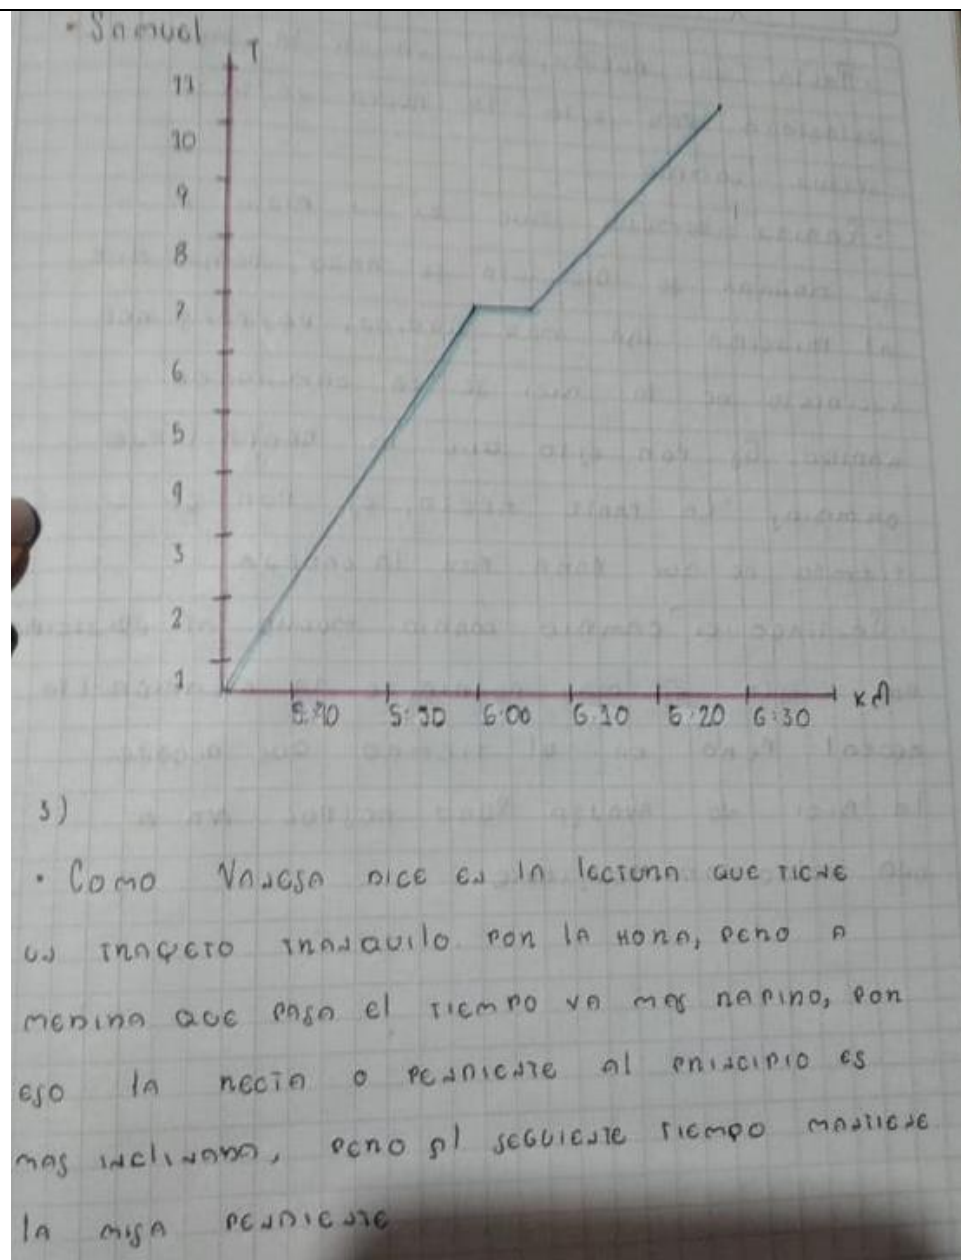 • Samuel
T
11
10
9
8
7
6
5
4
3
2
1
5:40 5:50 6:00 6:10 6:20 6:30 KM
3)
• Como Vanesa dice en la lectura que tiene
un trayeto tranquilo por la hora, pero a
medida que pasa el tiempo va mas rapido, por
eso la recta o pendiente al principio es
mas inclinada, pero al seguiente tiempo mantiene
la misa pendiente